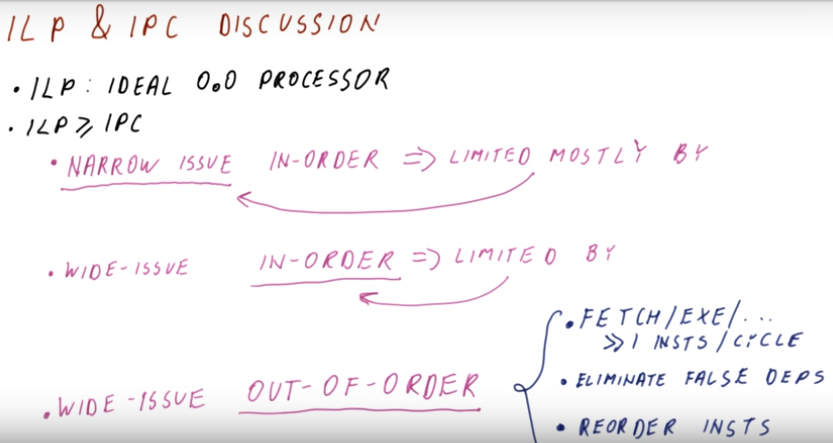 ILP & IPC DISCUSSION
• ILP: IDEAL O.O PROCESSOR
• ILP ≥ IPC
• NARROW ISSUE IN-ORDER => LIMITED MOSTLY BY
• WIDE-ISSUE IN-ORDER => LIMITED BY
• WIDE-ISSUE OUT-OF-ORDER
• FETCH/EXE/...
>> 1 INSTS/CYCLE
• ELIMINATE FALSE DEPS
• REORDER INSTS